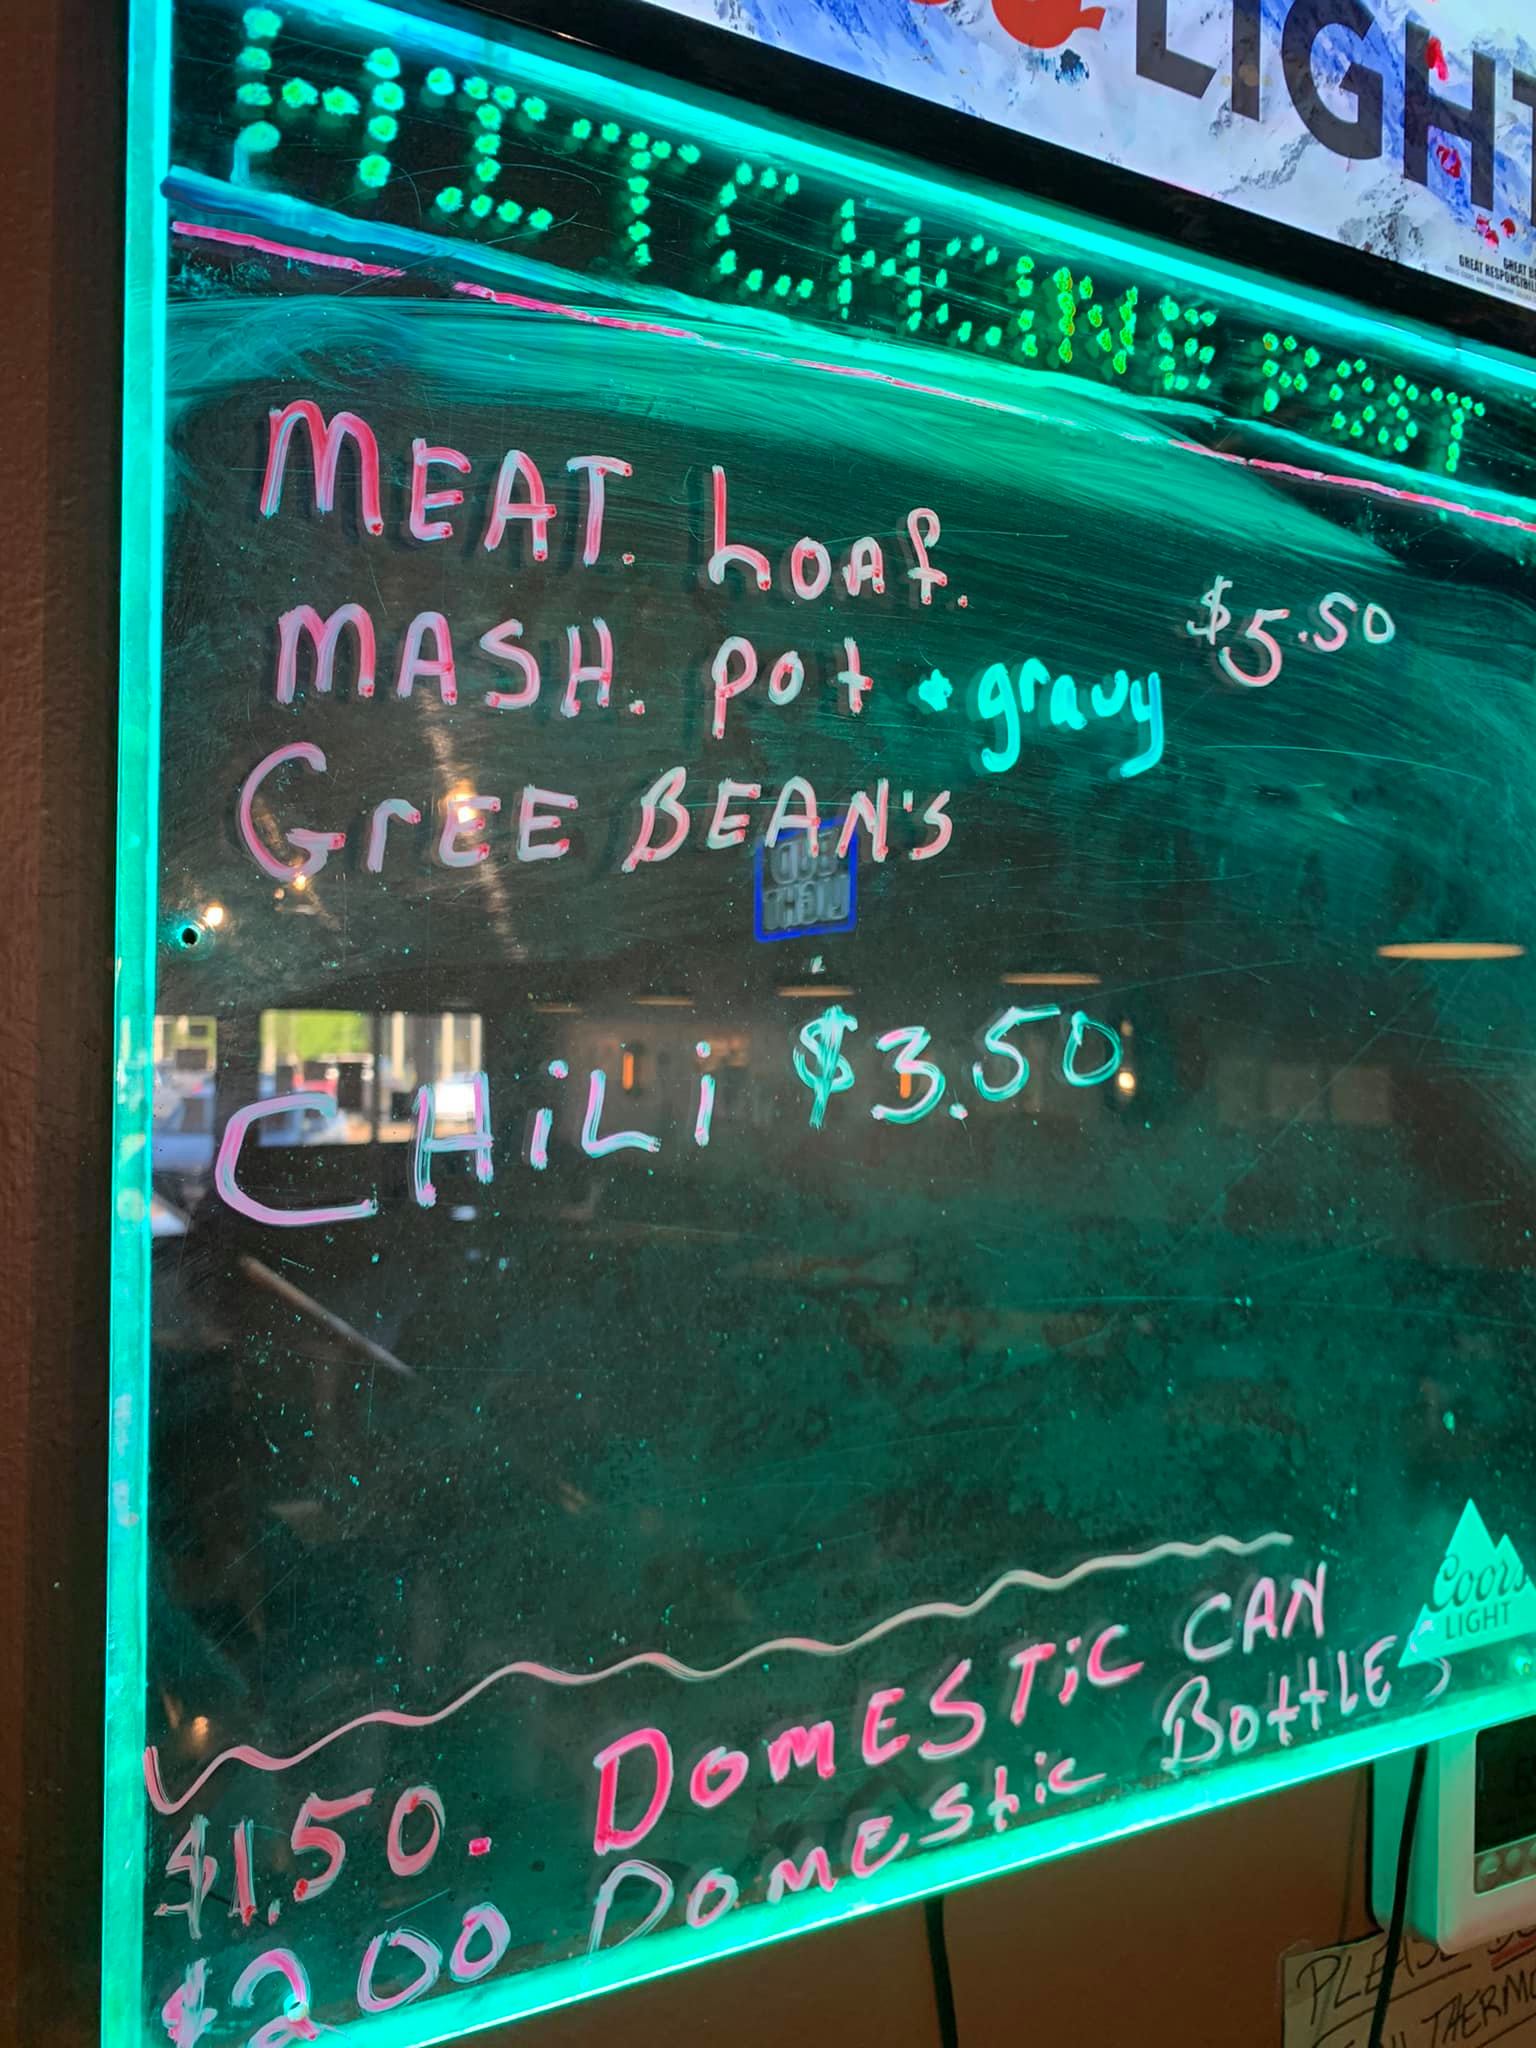 LIGHT
GREAT RESPONSIBILI
HITCHING POST
MEAT. Loaf.
$5.50
MASH. pot + gravy
GREE BEAN'S
BUD
LIGHT
CHiLi $3.50
Coors
LIGHT
$1.50. DOMESTiC CAN
$2.00 DOMEStic BottLES
PLEASE
THERMO